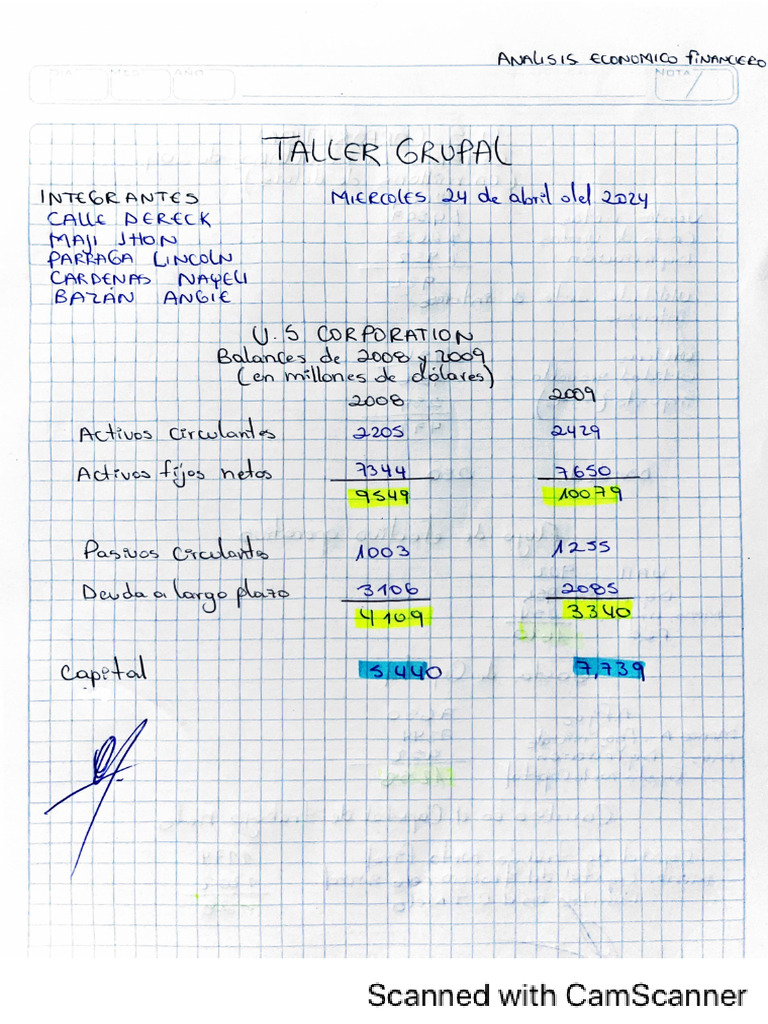 ANALISIS ECONOMICO FINANCIERO
DIA MES AÑO NOTA
TALLER GRUPAL
INTEGRANTES MIERCOLES 24 de abril del 2024
CALLE DERECK
MAJI JHON
PARRAGA LINCOLN
CARDENAS NAYELI
BAZÁN ANGIE
U.S CORPORATION
Balances de 2008 y 2009
(en millones de dólares)
2008 2009
Activos circulantes 2205 2429
Activos fijos netos 7344 7650
9549 10079
Pasivos circulantes 1003 1255
Deuda a largo plazo 3106 2085
4109 3340
Capital 5,440 7,739
Scanned with CamScanner